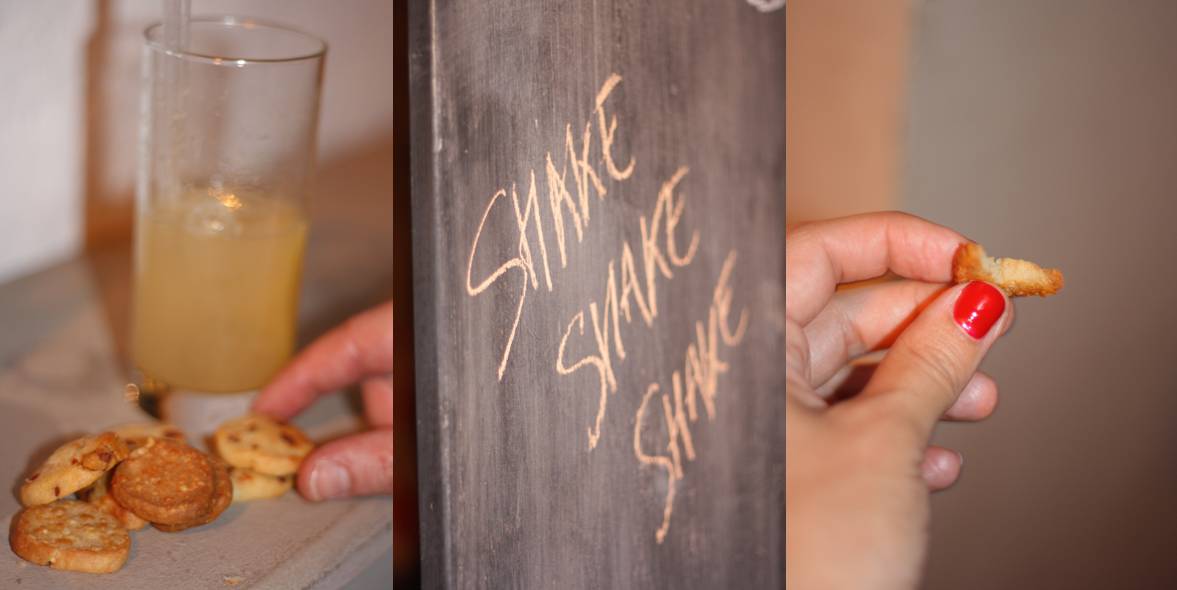 SHAKE
SHAKE
SHAKE